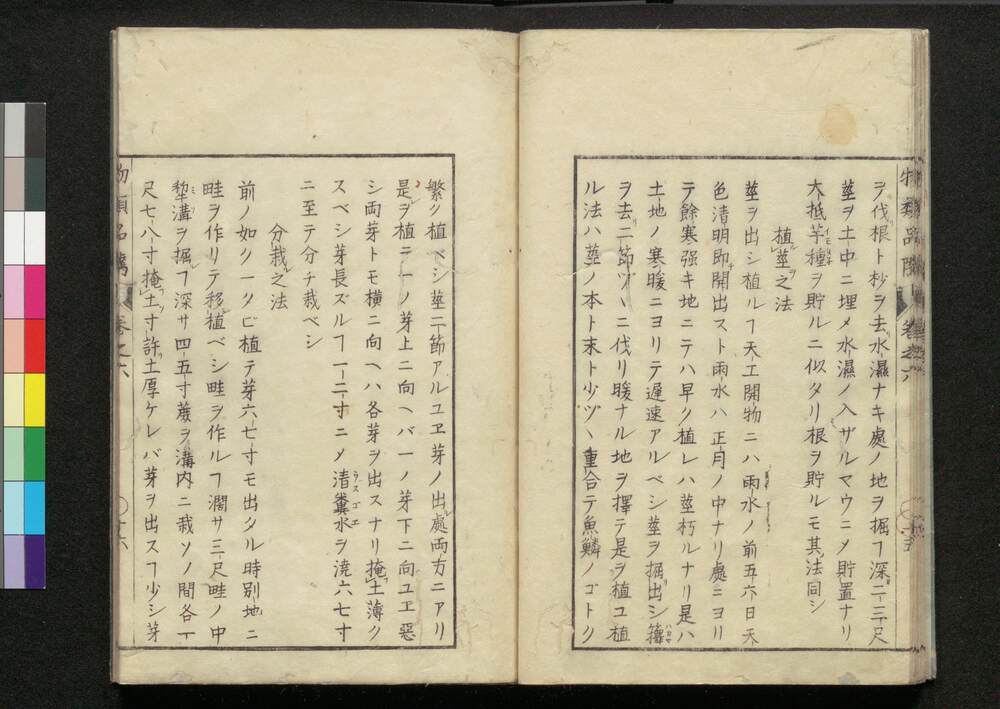 物類品隲 卷之六
ヲ伐根ト杪ヲ去水濕ナキ處ノ地ヲ掘ヿ深二三尺
莖ヲ土中ニ埋メ水濕ノ入ザルヤウニメ貯置ナリ
大抵芋種ヲ貯ルニ似タリ根ヲ貯ルモ其法同シ
植莖之法
莖ヲ出シ植ルヿ天工開物ニハ雨水ノ前五六日天
色淸明即開出スト雨水ハ正月ノ中ナリ處ニヨリ
テ餘寒强キ地ニテハ早ク植レハ莖朽ルナリ是ハ
土地ノ寒暖ニヨリテ遲速アルベシ莖ヲ掘出シ籜
ヲ去二節ヅヽニ伐リ暖ナル地ヲ擇テ是ヲ植ユ植
ル法ハ莖ノ本ト末ト少ヅヽ重合テ魚鱗ノゴトク
繁ク植ベシ莖二節アルユヱ芽ノ出處両方ニアリ
是ヲ植ニ一ノ芽上ニ向ヘバ一ノ芽下ニ向ユヱ惡
シ両芽トモ橫ニ向ヘハ各芽ヲ出スナリ掩土薄ク
スベシ芽長ズルヿ一二寸ニメ清糞水ヲ澆六七寸
ニ至テ分チ栽ベシ
分栽之法
前ノ如ク一タビ植テ芽六七寸モ出タル時別地ニ
畦ヲ作リテ移植ベシ畦ヲ作ルヿ濶サ三尺畦ノ中
犂溝ヲ掘ヿ深サ四五寸蔗ヲ溝内ニ栽ソノ間各一
尺七八寸掩土寸許土厚ケレバ芽ヲ出スヿ少シ芽
物類品隲 卷之六 十六